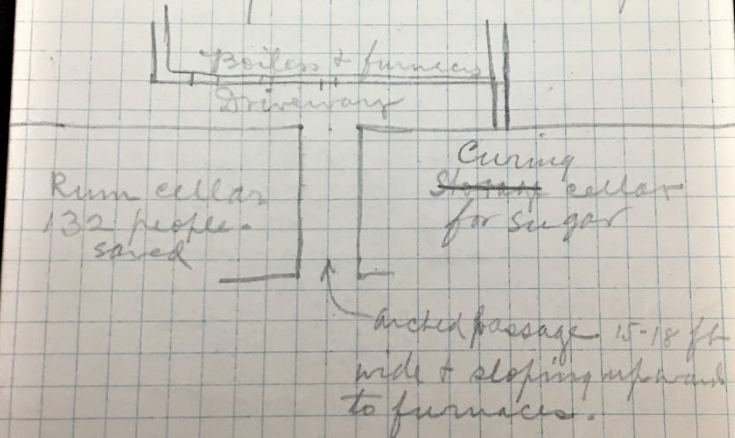 Boilers + furnaces
Driveway
Rum cellar
132 people
saved
Curing
Storage cellar
for sugar
arched passage 15-18 ft
wide + sloping upward
to furnaces.